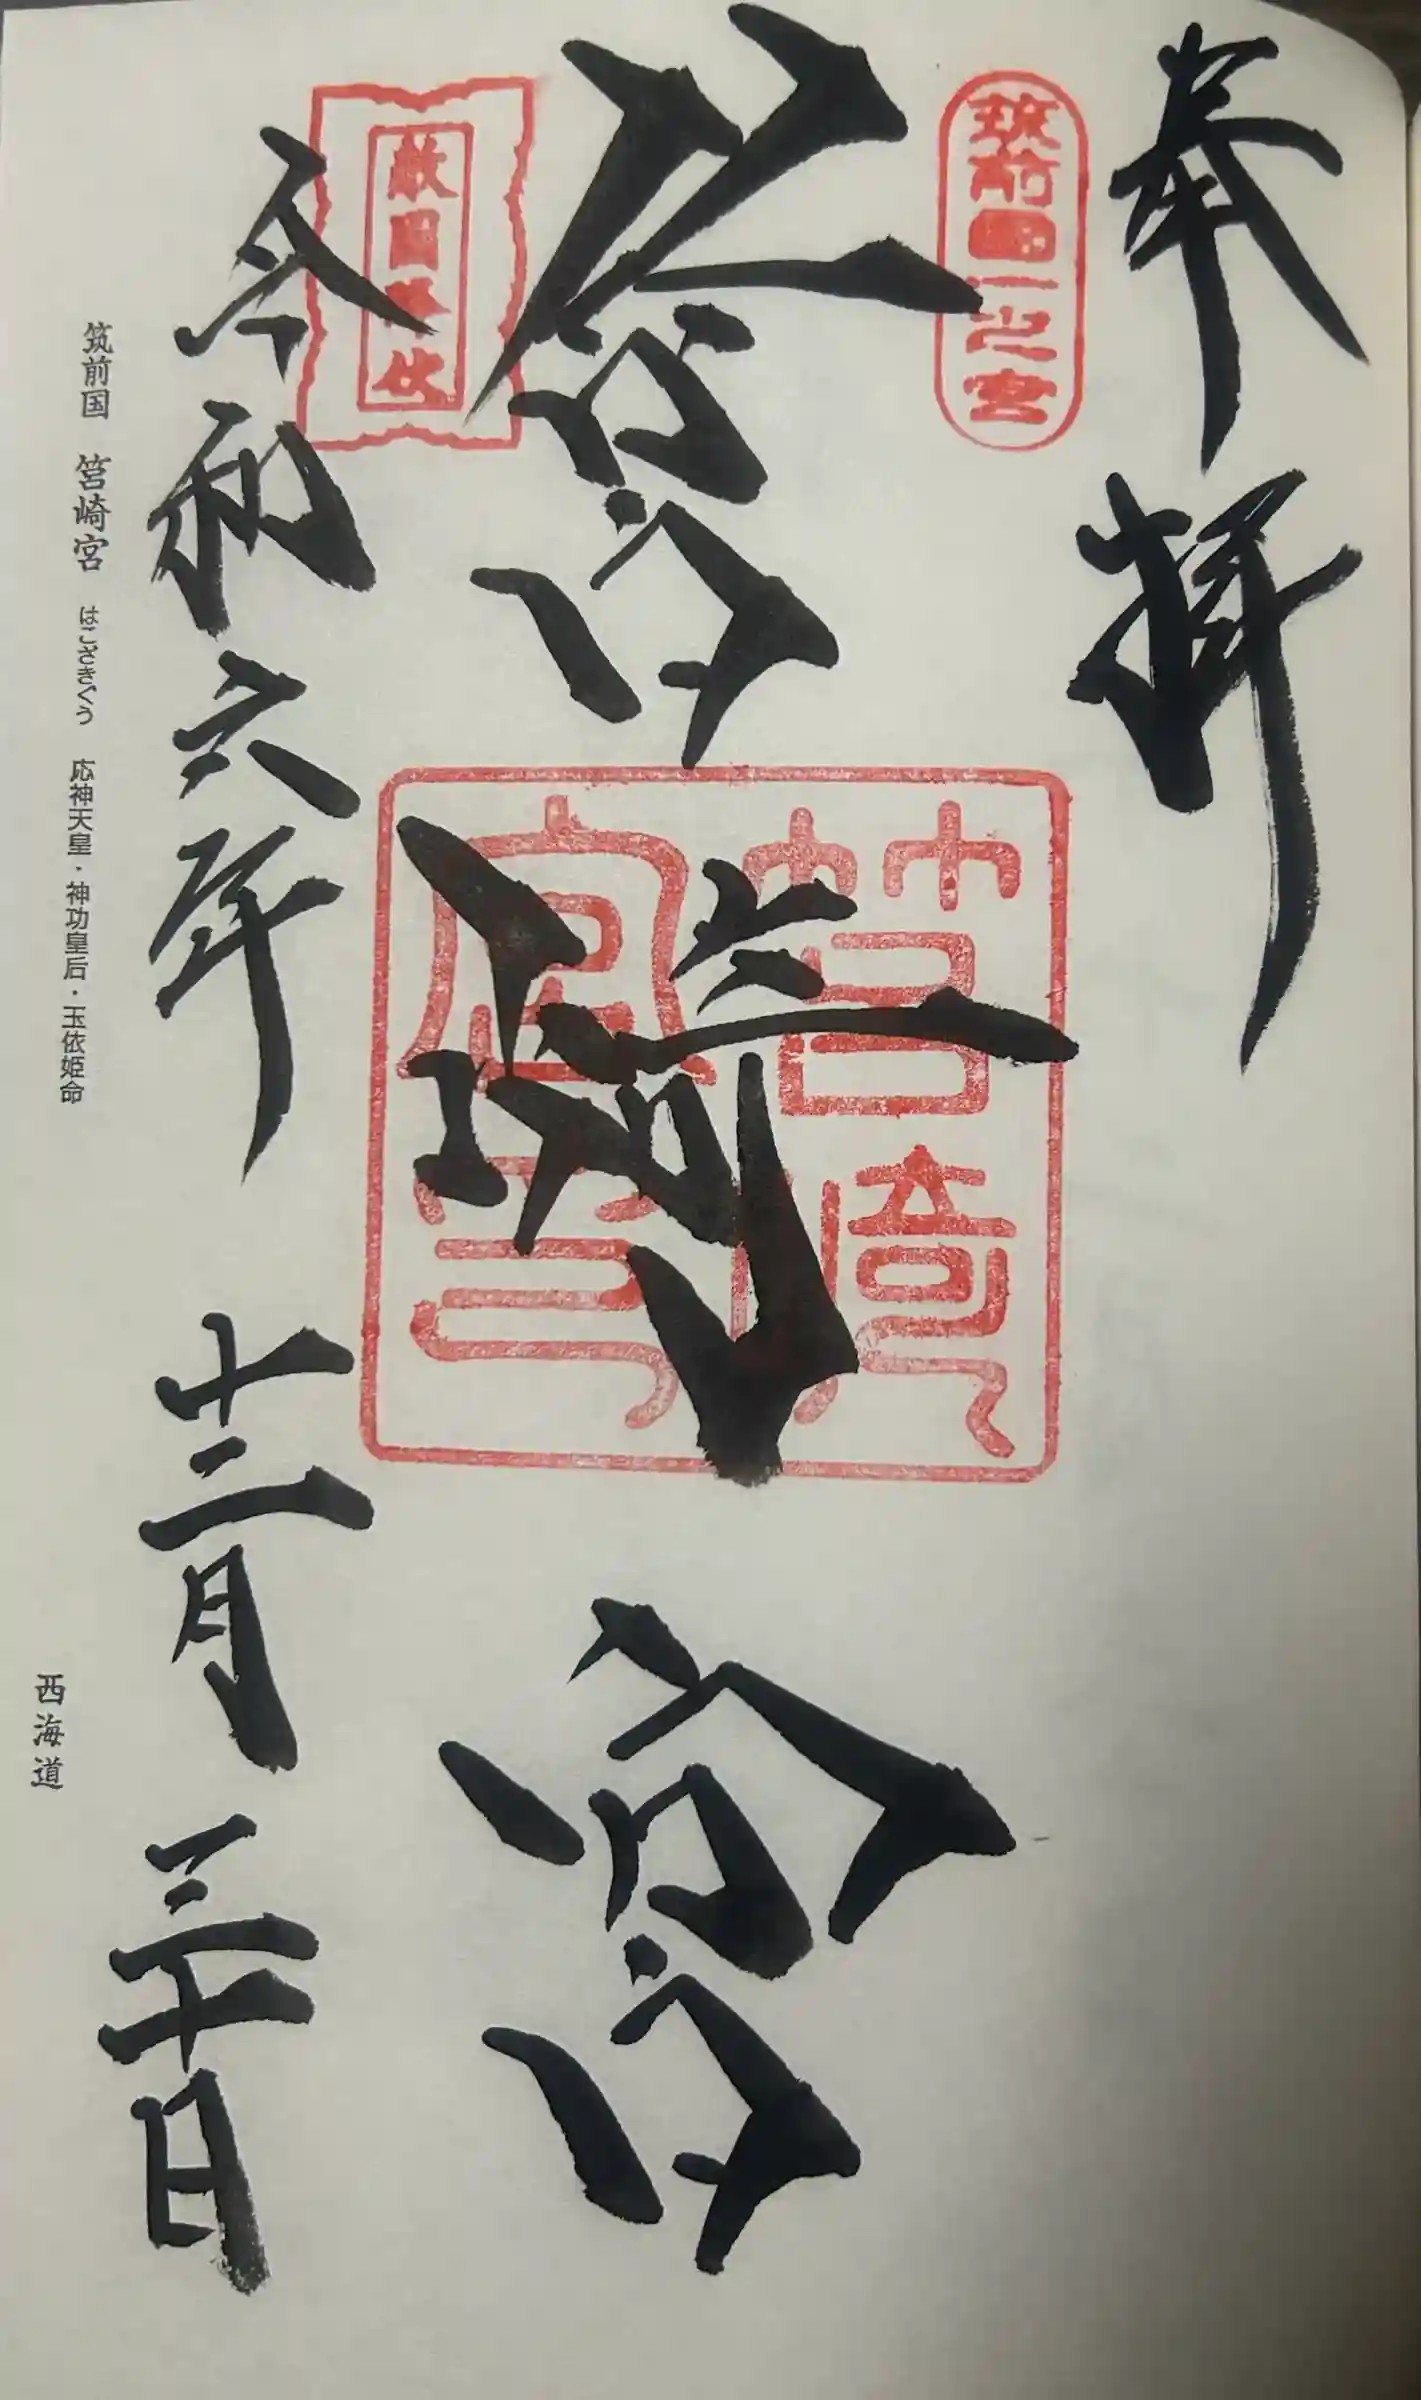 奉拝
筑前國一之宮
筥崎宮
筥崎宮
敵国降伏
令和六年 十二月 三十日
筑前国 筥崎宮 はこざきぐう 応神天皇・神功皇后・玉依姫命
西海道